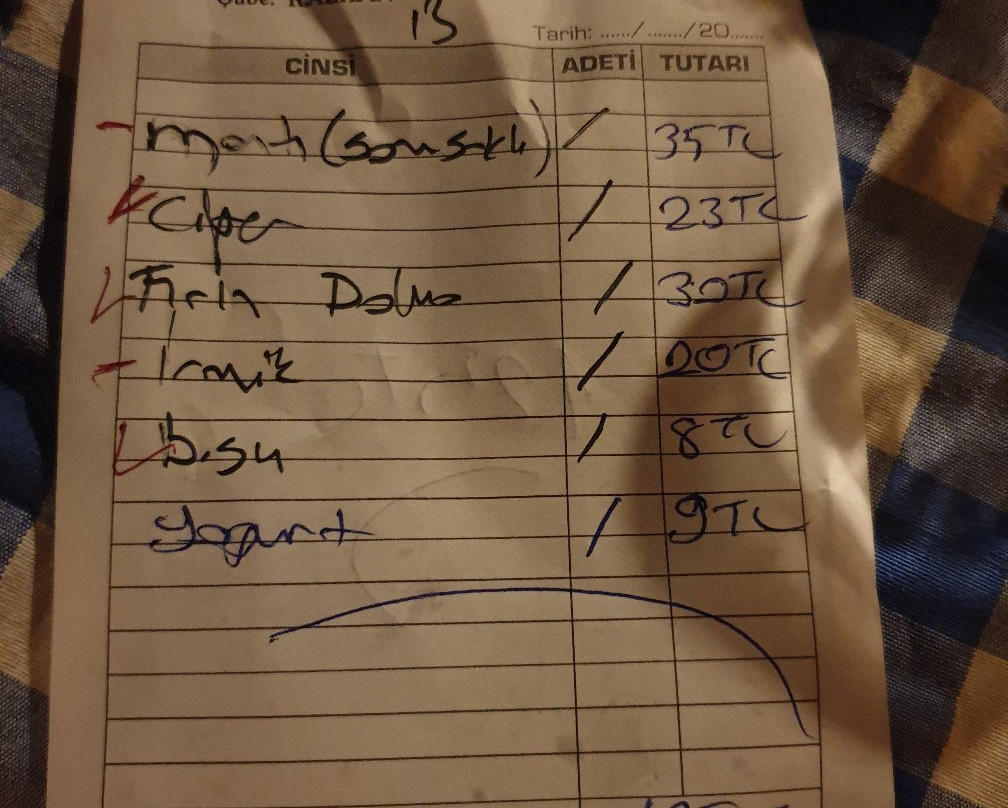 13
Tarih: ....../ ......./20.......
CİNSİ ADETİ TUTARI
Mantı (Sarımsaklı) / 35 TL
/ 23 TL
Fırın Dolma / 30 TL
İrmik / 20 TL
B.su / 8 TL
Yogurt / 9 TL